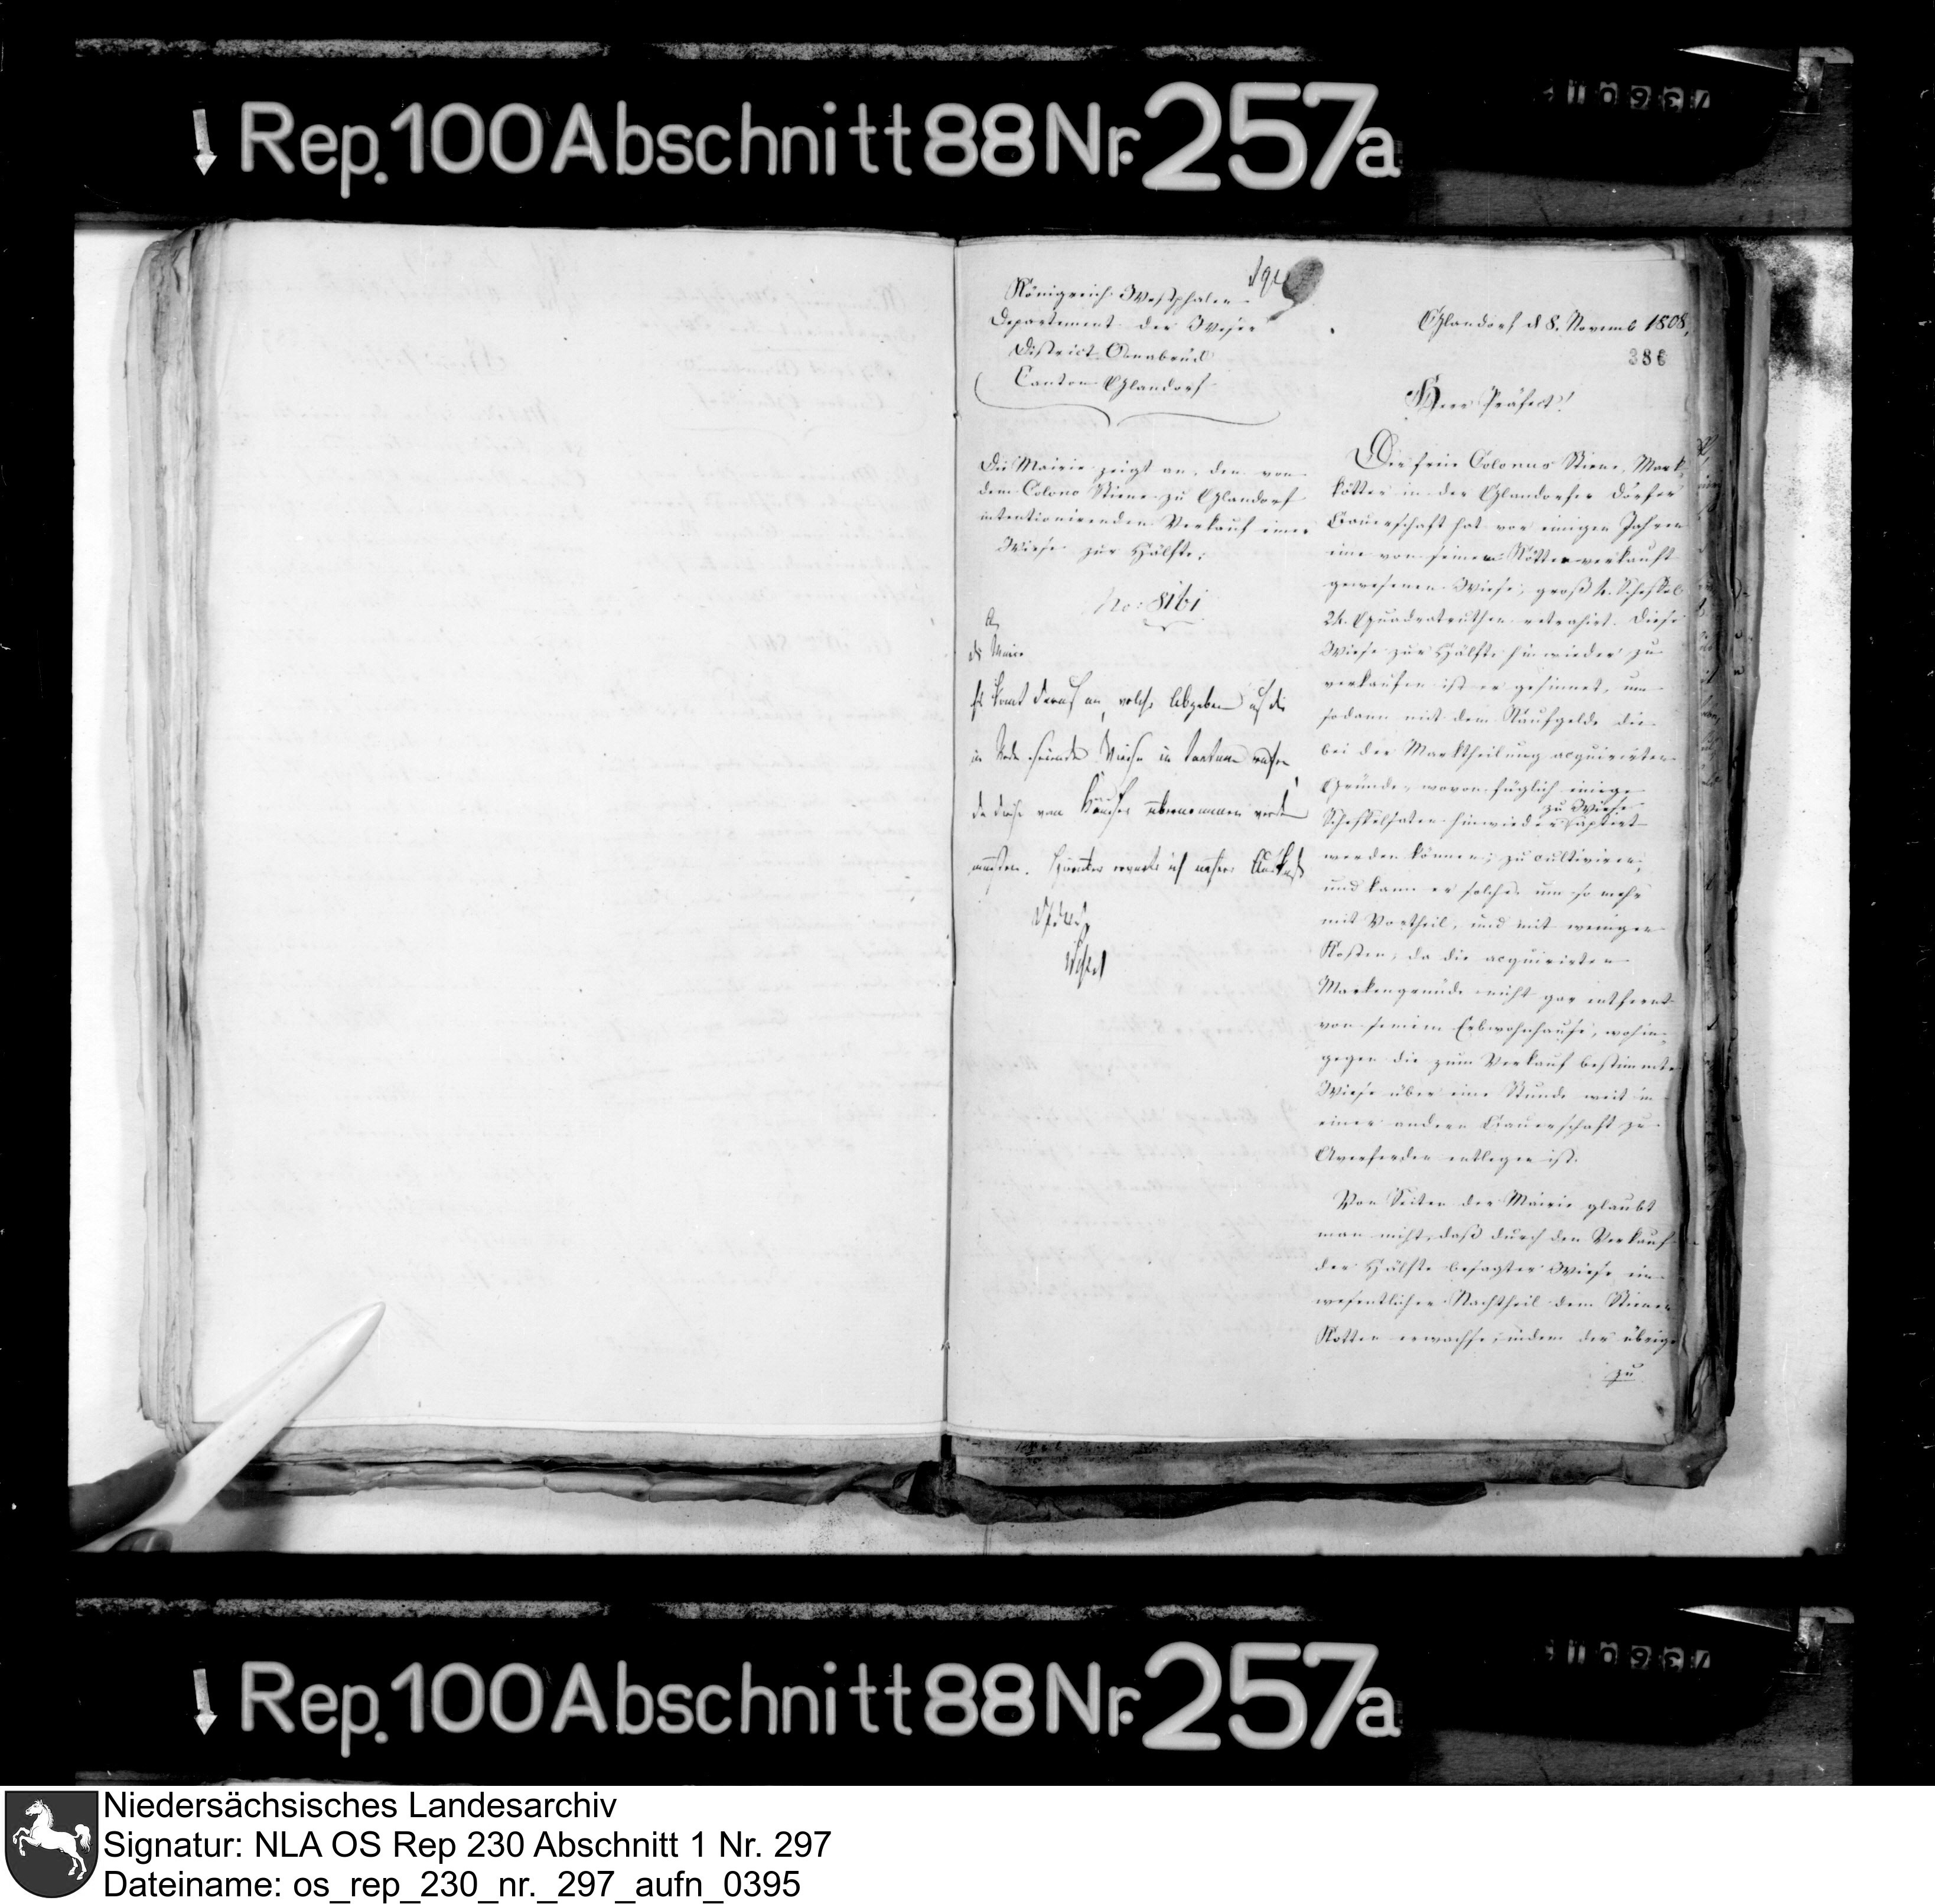 Rep. 100 Abschnitt 88 Nr. 257a
Königreich Westphalen
Departement der Weser
District Osnabrück
Canton Glandorf
Glandorf d 8. Novemb 1808,
386
Herr Präfect!
Die Mairie zeigt an, den von
dem Colono Stiene zu Glandorf
intentionirenden Verkauf einer
Wiese zur Hälfte.
No: 8161
Der freie Colonus Stiene, Mark-
kötter in der Glandorfer Dorfer
Bauerschaft hat vor einigen Jahren
eine von seinem Kotten verkauft
gewesenen Wiese, groß 4. Scheffel
24. Quadratruthen retrahirt. Diese
Wiese zur Hälfte hinwieder zu
verkaufen ist er gesinnet, um
sodann mit dem Kaufgelde die
bei der Marktheilung acquirirten
Gründe, wovon füglich einige
Scheffelsaten hinwieder zu Wiese aptirt
werden können, zu cultiviren,
und kann er solches um so mehr
mit Vortheil, und mit weniger
Kosten, da die acquirirten
Markengründe nicht gar entfernt
von seinem Erbwohnhause, wohin-
gegen die zum Verkauf bestimmte
Wiese über eine Stunde weit in
einer andern Bauerschaft zu
Averfehrden entlegen ist.
Von Seiten der Mairie glaubt
man nicht, daß durch den Verkauf
der Hälfte besagter Wiese ein
wesentlicher Nachtheil dem Stienen
Kotten erwachse, indem der übrige
zu
an
die Maire
Es komt darauf an, welche Abgaben auf die
in Rede seiende Wiese in tantum
da diese vom Käufer übernommen werden
müssen. Hierüber erwarte ich nähere Auskunft
Rep. 100 Abschnitt 88 Nr. 257a
Niedersächsisches Landesarchiv
Signatur: NLA OS Rep 230 Abschnitt 1 Nr. 297
Dateiname: os_rep_230_nr._297_aufn_0395